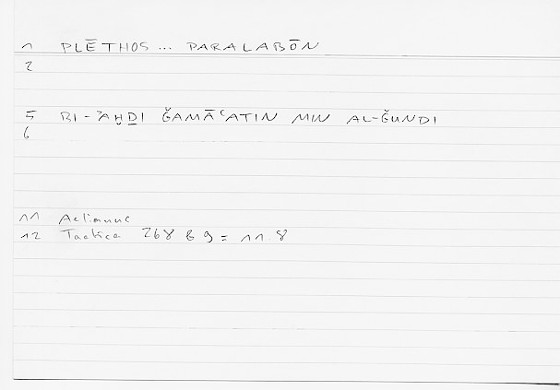 1 PLĒTHOS... PARALABŌN
2
5 BI-'AḪḎI ǦAMĀʿATIN MIN AL-ǦUNDI
6
11 Aelianus
12 Tactica 268 b 9 = 11 8